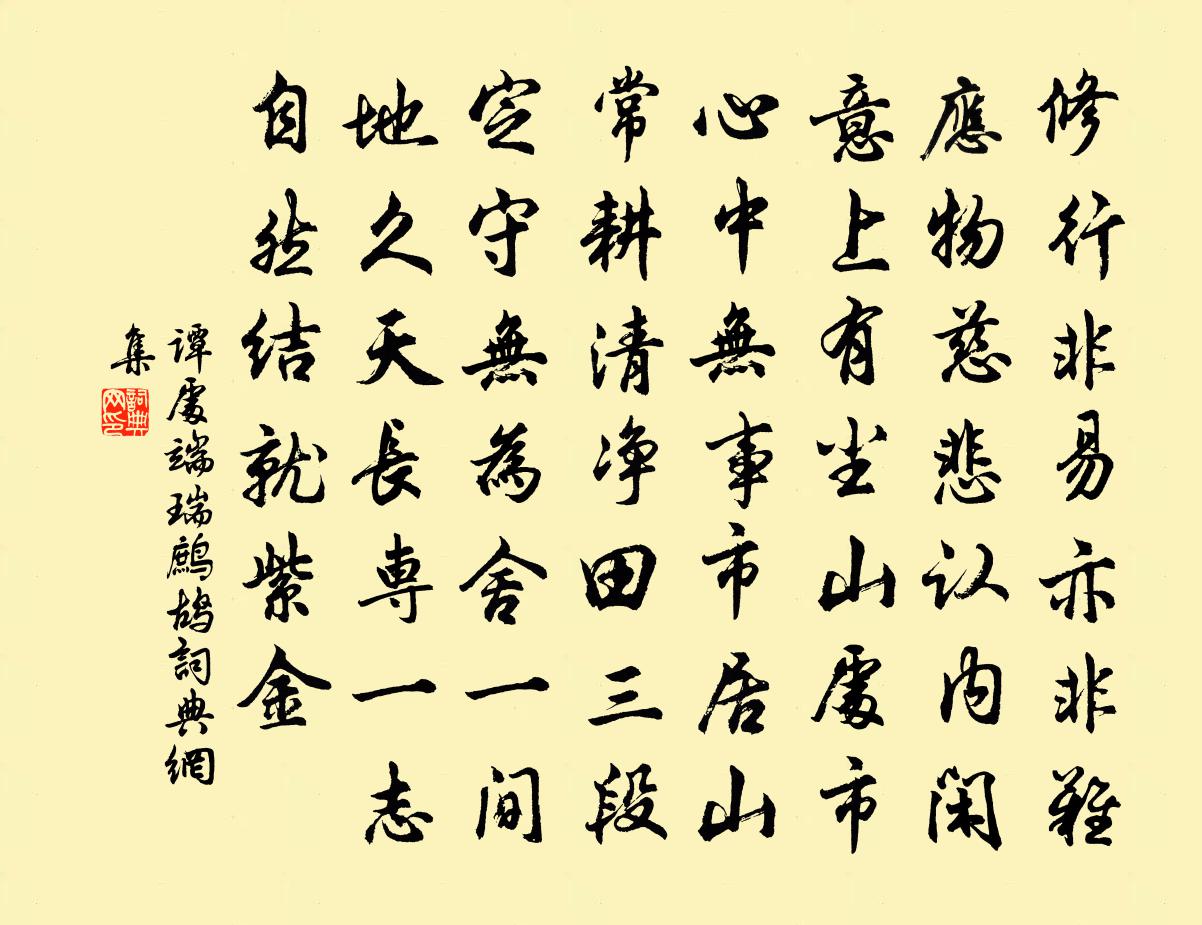 修行非易亦非難
應物慈悲认内闲
意上有尘山處市
心中無事市居山
常耕清净田三段
定守無為舍一间
地久天長専一志
自然结就紫金
谭處端瑞鹧鸪詞典網
集
詞典网印